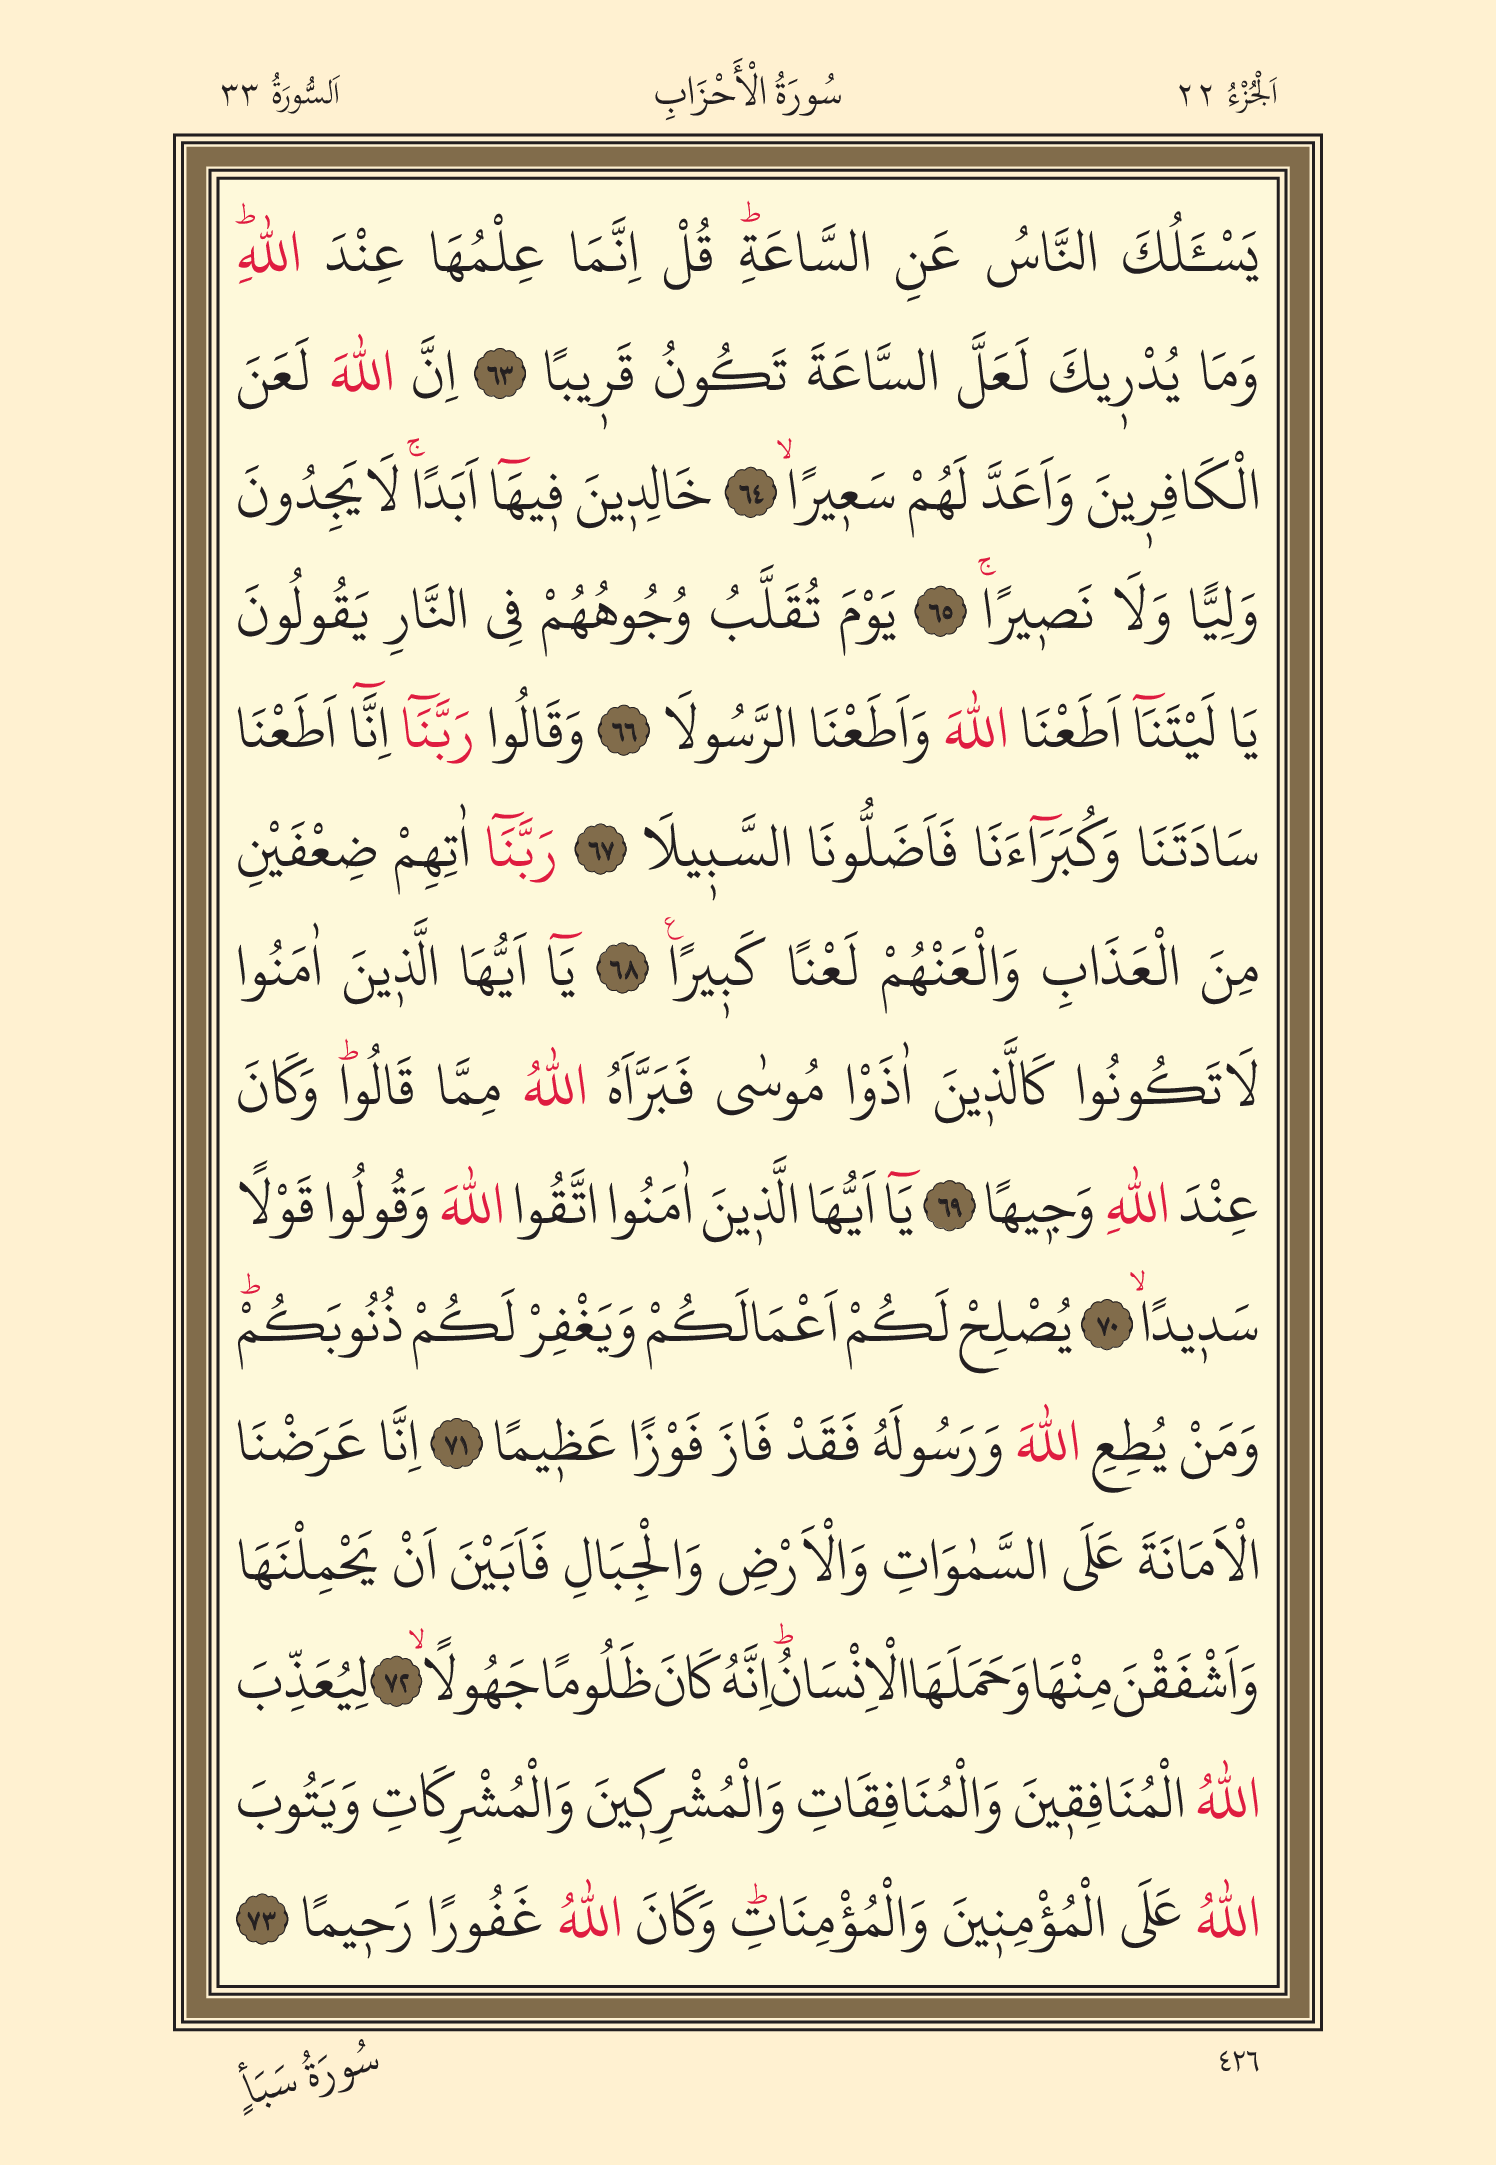 اَلْجُزْءُ ٢٢
سُورَةُ الْأَحْزَابِ
اَلسُّورَةُ ٣٣
يَسْـَٔلُكَ النَّاسُ عَنِ السَّاعَةِۜ قُلْ اِنَّمَا عِلْمُهَا عِنْدَ اللّٰهِۜ
وَمَا يُدْر۪يكَ لَعَلَّ السَّاعَةَ تَكُونُ قَر۪يبًا ٦٣ اِنَّ اللّٰهَ لَعَنَ
الْكَافِر۪ينَ وَاَعَدَّ لَهُمْ سَع۪يرًاۙ ٦٤ خَالِد۪ينَ ف۪يهَٓا اَبَدًاۚ لَا يَجِدُونَ
وَلِيًّا وَلَا نَص۪يرًاۚ ٦٥ يَوْمَ تُقَلَّبُ وُجُوهُهُمْ فِى النَّارِ يَقُولُونَ
يَا لَيْتَنَٓا اَطَعْنَا اللّٰهَ وَاَطَعْنَا الرَّسُولَا ٦٦ وَقَالُوا رَبَّنَٓا اِنَّٓا اَطَعْنَا
سَادَتَنَا وَكُبَرَٓاءَنَا فَاَضَلُّونَا السَّب۪يلَا ٦٧ رَبَّنَٓا اٰتِهِمْ ضِعْفَيْنِ
مِنَ الْعَذَابِ وَالْعَنْهُمْ لَعْنًا كَب۪يرًاع ٦٨ يَٓا اَيُّهَا الَّذ۪ينَ اٰمَنُوا
لَا تَكُونُوا كَالَّذ۪ينَ اٰذَوْا مُوسٰى فَبَرَّاَهُ اللّٰهُ مِمَّا قَالُواۜ وَكَانَ
عِنْدَ اللّٰهِ وَج۪يهًا ٦٩ يَٓا اَيُّهَا الَّذ۪ينَ اٰمَنُوا اتَّقُوا اللّٰهَ وَقُولُوا قَوْلًا
سَد۪يدًاۙ ٧٠ يُصْلِحْ لَكُمْ اَعْمَالَكُمْ وَيَغْفِرْ لَكُمْ ذُنُوبَكُمْۜ
وَمَنْ يُطِعِ اللّٰهَ وَرَسُولَهُ فَقَدْ فَازَ فَوْزًا عَظ۪يمًا ٧١ اِنَّا عَرَضْنَا
الْاَمَانَةَ عَلَى السَّمٰوَاتِ وَالْاَرْضِ وَالْجِبَالِ فَاَبَيْنَ اَنْ يَحْمِلْنَهَا
وَاَشْفَقْنَ مِنْهَا وَحَمَلَهَا الْاِنْسَانُۜ اِنَّهُ كَانَ ظَلُومًا جَهُولًاۙ ٧٢ لِيُعَذِّبَ
اللّٰهُ الْمُنَافِق۪ينَ وَالْمُنَافِقَاتِ وَالْمُشْرِك۪ينَ وَالْمُشْرِكَاتِ وَيَتُوبَ
اللّٰهُ عَلَى الْمُؤْمِن۪ينَ وَالْمُؤْمِنَاتِۜ وَكَانَ اللّٰهُ غَفُورًا رَح۪يمًا ٧٣
٤٢٦
سُورَةُ سَبَأٍ